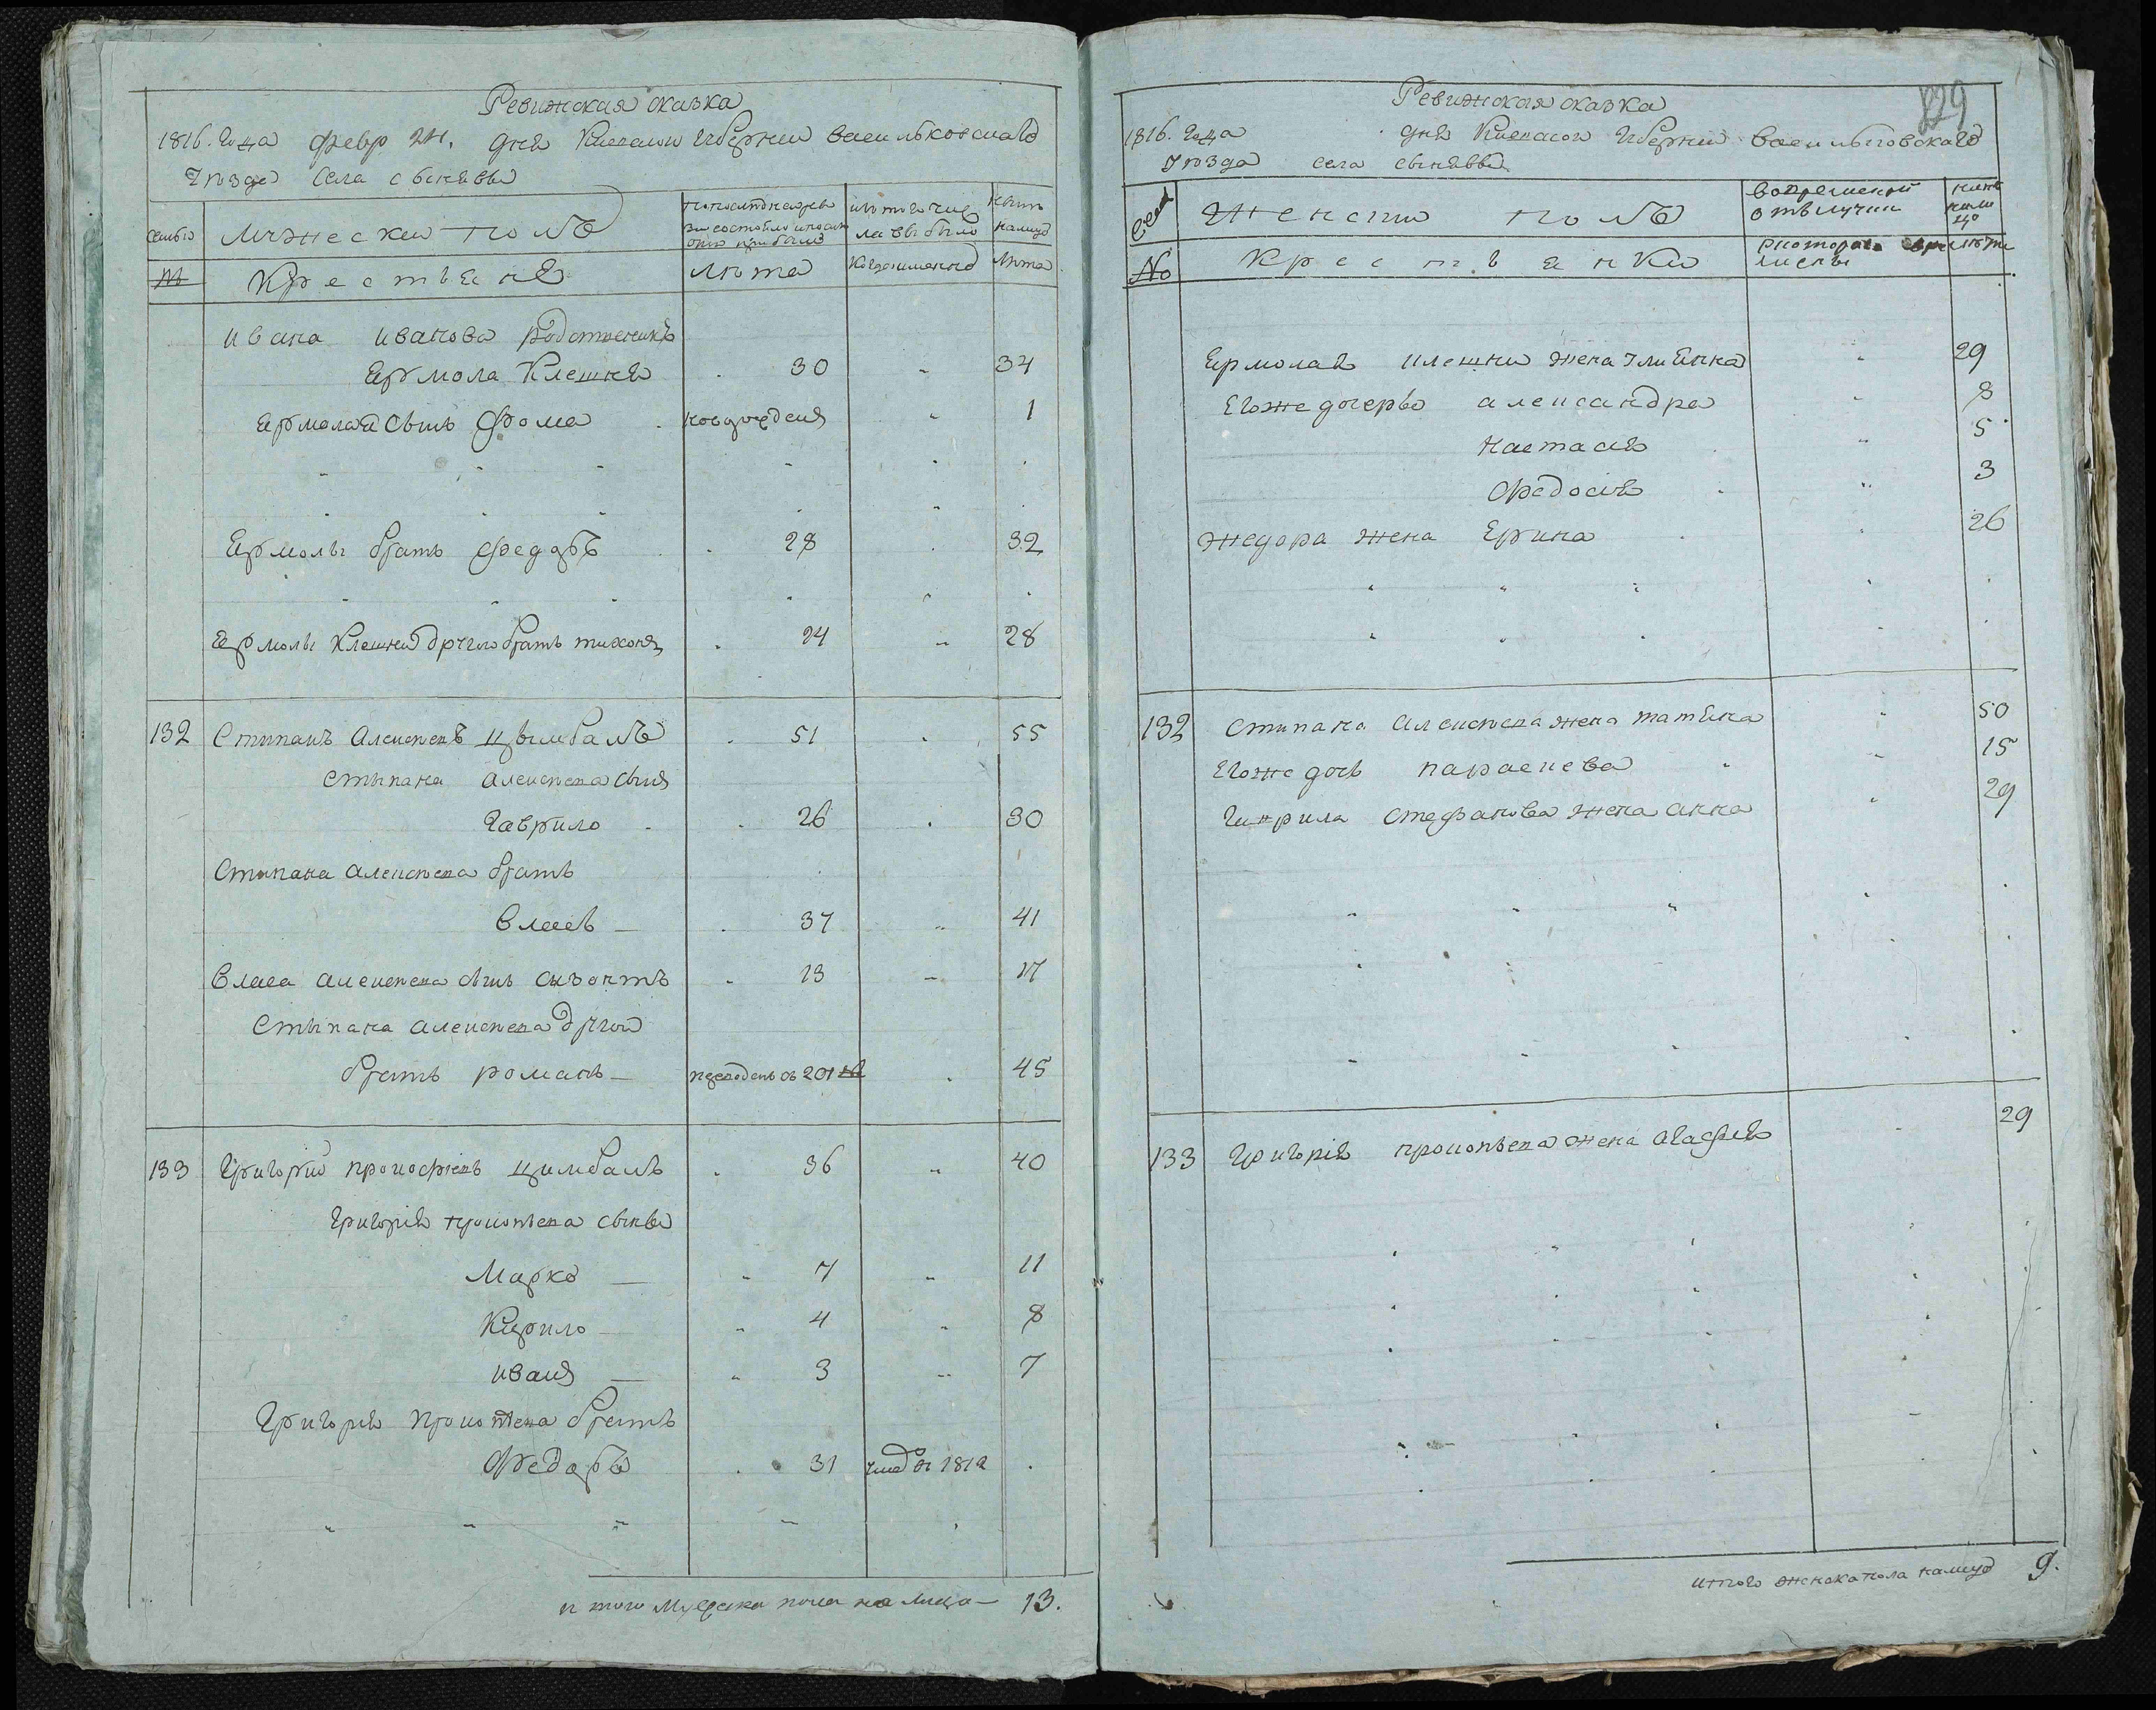 Ревижская сказка
1816. года февр 24. дня Киевской губернии васильковскаго
Уезда села сынявы
семьи Мужеской полъ
№ Крестьяне лета когда именно лета
ивана иванова родственикъ
Ермола Клешня 30 34
Ермолая сынъ Фома новорожденъ 1
Ермолы братъ Федоръ 28 32
Ермолы Клешни другой братъ тихонъ 24 28
132 Стыпанъ Алексеевъ цымбалъ 51 55
Стыпана алексеева сынъ
Гаврило 26 30
Стыпана алексеева братъ
Власъ 37 41
Власа алексеева сынъ 13 17
Стыпана алексеева другой
братъ романъ 201 45
133 Григорий прокофьевъ цимбалъ 36 40
Григория прокопьева сыны
Марко 7 11
Кирило 4 8
иванъ 3 7
Григория прокопьева братъ
Федоръ 31 1812
итого мужеска пола на лицо 13.
229
Ревижская сказка
1816. года дня Киевской губернии васильковскаго
Уезда села сынявы
Женской полъ во временной отлучки
№ Крестьянки с котораго времени
Ермолая клешни жена улияна 29
Егоже дочерьи александра 8
настасия 5
Федосия 3
Федора жена Ерина 26
132 Стыпана алексеева жена татияна 50
Егоже дочь параскева 15
Гаврила Стефанова жена анна 29
133 Григория прокопьева жена агафия 29
итого женска пола налицо 9.